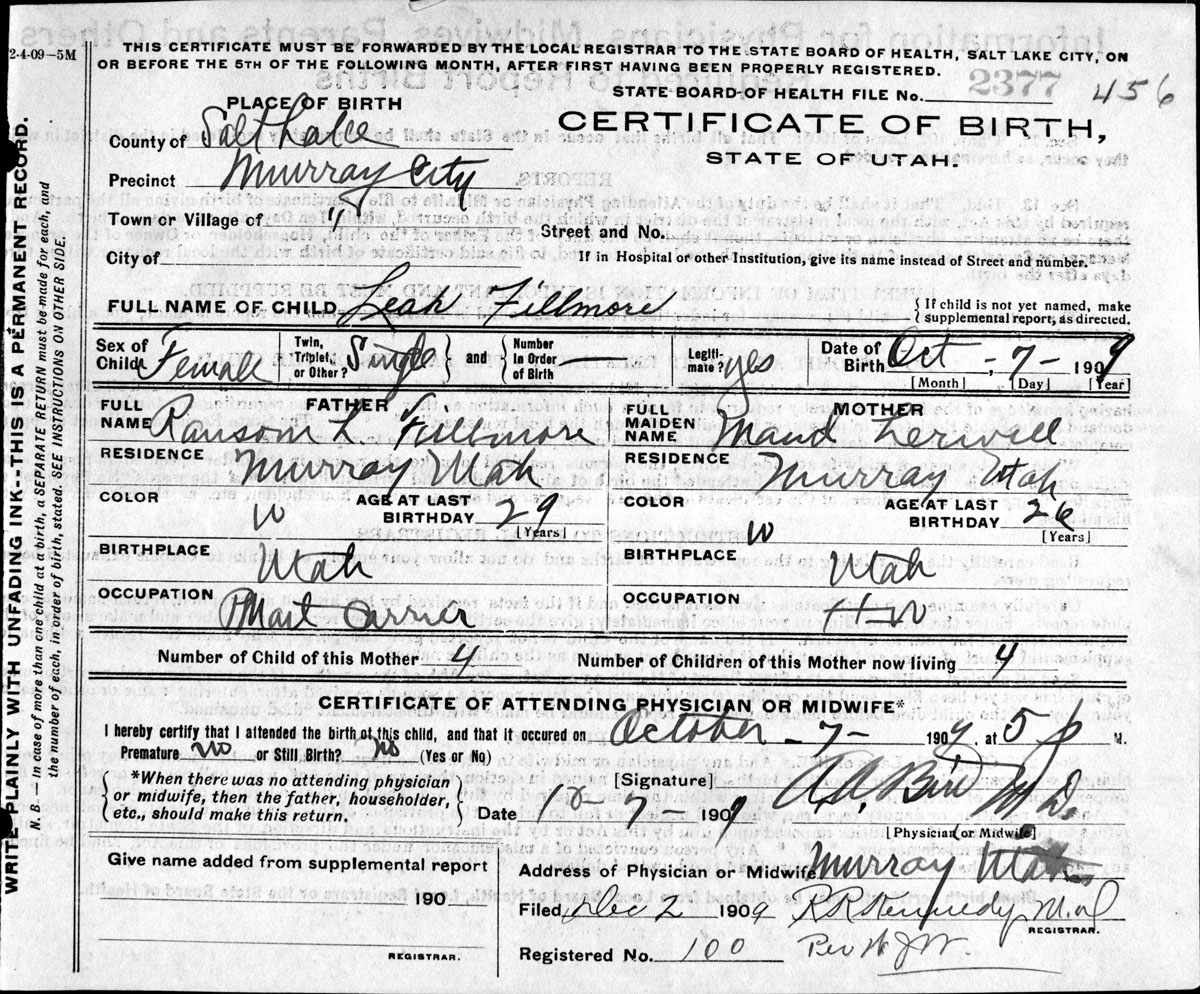 2-4-09—5M
THIS CERTIFICATE MUST BE FORWARDED BY THE LOCAL REGISTRAR TO THE STATE BOARD OF HEALTH, SALT LAKE CITY, ON
OR BEFORE THE 5TH OF THE FOLLOWING MONTH, AFTER FIRST HAVING BEEN PROPERLY REGISTERED.
STATE BOARD OF HEALTH FILE No. 2377 456
PLACE OF BIRTH
CERTIFICATE OF BIRTH,
STATE OF UTAH.
County of Salt Lake
Precinct Murray City
Town or Village of " Street and No.
City of If in Hospital or other Institution, give its name instead of Street and number.
FULL NAME OF CHILD Leah Fillmore { If child is not yet named, make supplemental report, as directed.
Sex of Child Female Twin, Triplet, or Other? Single } and { Number in Order of Birth — Legitimate? yes Date of Birth Oct - 7 - 1909
[Month] [Day] [Year]
FATHER MOTHER
FULL NAME Ransom L Fillmore FULL MAIDEN NAME Maud
RESIDENCE Murray Utah RESIDENCE Murray Utah
COLOR W AGE AT LAST BIRTHDAY 29 [Years] COLOR W AGE AT LAST BIRTHDAY 26 [Years]
BIRTHPLACE Utah BIRTHPLACE Utah
OCCUPATION Carrier OCCUPATION H W
Number of Child of this Mother 4 Number of Children of this Mother now living 4
CERTIFICATE OF ATTENDING PHYSICIAN OR MIDWIFE*
I hereby certify that I attended the birth of this child, and that it occured on October - 7 - 1909, at 5 P M.
Premature no or Still Birth? no (Yes or No)
{ *When there was no attending physician or midwife, then the father, householder, etc., should make this return. }
[Signature] M D.
Date 10 - 7 - 1909
[Physician or Midwife]
Give name added from supplemental report
Address of Physician or Midwife Murray Utah
190
Filed Dec 2 1909 R R Kennedy M.D
REGISTRAR.
REGISTRAR.
Registered No. 100 Per
WRITE PLAINLY WITH UNFADING INK--THIS IS A PERMANENT RECORD.
N. B.—in case of more than one child at birth, a SEPARATE RETURN must be made for each, and
the number of each, in order of birth, stated. SEE INSTRUCTIONS ON OTHER SIDE.